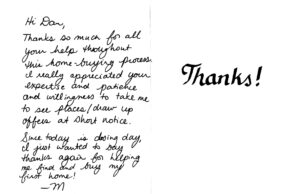 Hi Dan,
Thanks so much for all
your help throughout
this home-buying process.
I really appreciated your
expertise and patience
and willingness to take me
to see places/draw up
offers at short notice.
Since today is closing day,
I just wanted to say
thanks again for helping
me find and buy my
first home!
—M
Thanks!